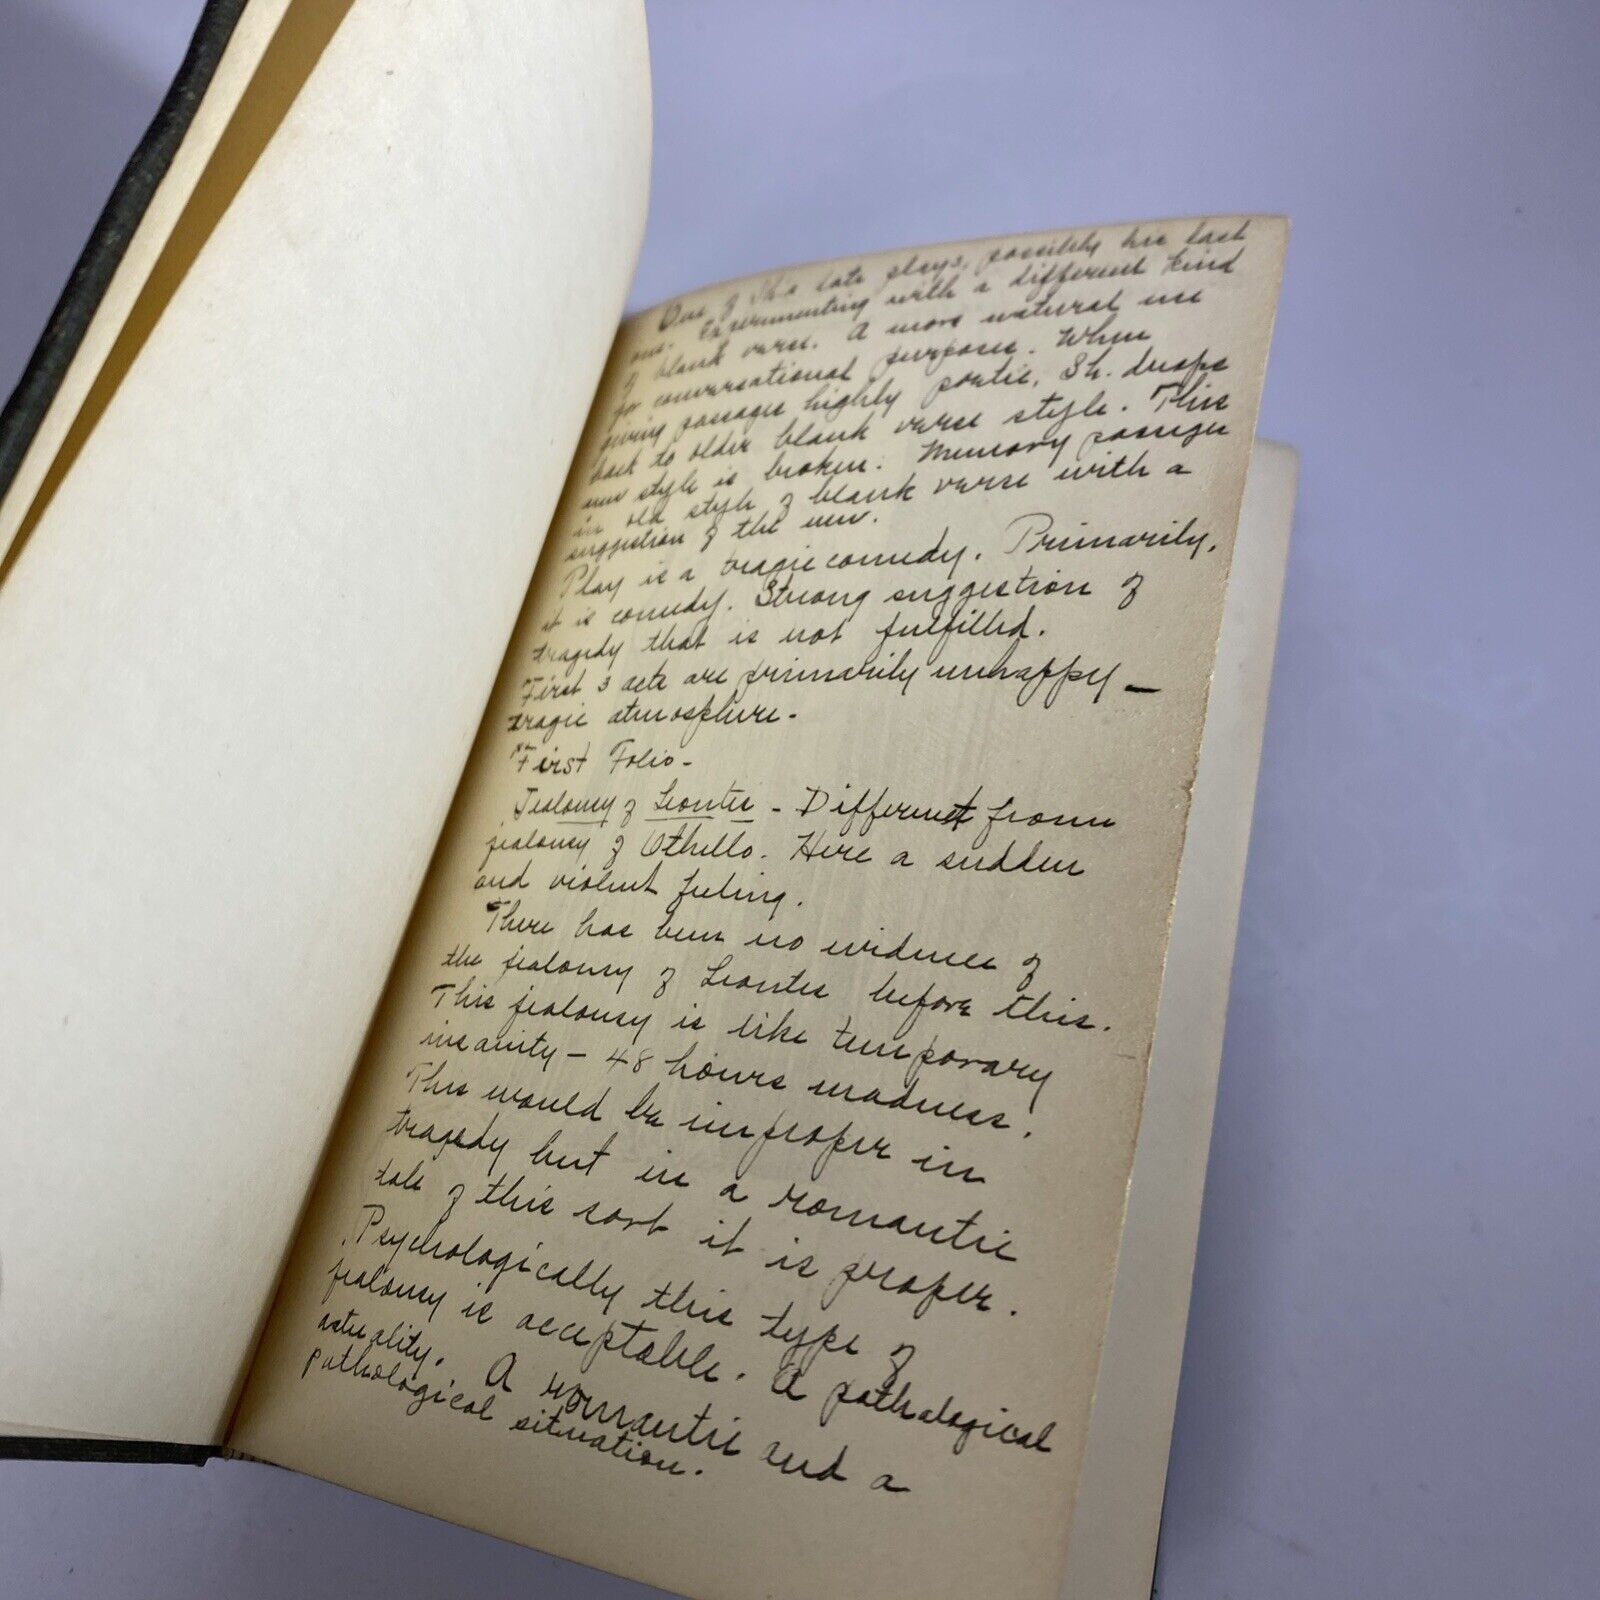 One of Sh's late plays, possibly his last
one. Experimenting with a different kind
of blank verse. A more natural use
for conversational purposes. When
giving passages highly poetic, Sh. drops
back to older blank verse style. This
new style is broken. Memory passages
in old style of blank verse with a
suggestion of the new.
Play is a tragic comedy. Primarily,
it is comedy. Strong suggestion of
tragedy that is not fulfilled.
First 3 acts are primarily unhappy –
tragic atmosphere.
First Folio –
Jealousy of Leontes – Different from
jealousy of Othello. Here a sudden
and violent feeling.
There has been no evidence of
the jealousy of Leontes before this.
This jealousy is like temporary
insanity – 48 hours madness.
This would be improper in
tragedy but in a romantic
tale of this sort it is proper.
Psychologically this type of
jealousy is acceptable. A pathological
actuality. A romantic and a
pathological situation.